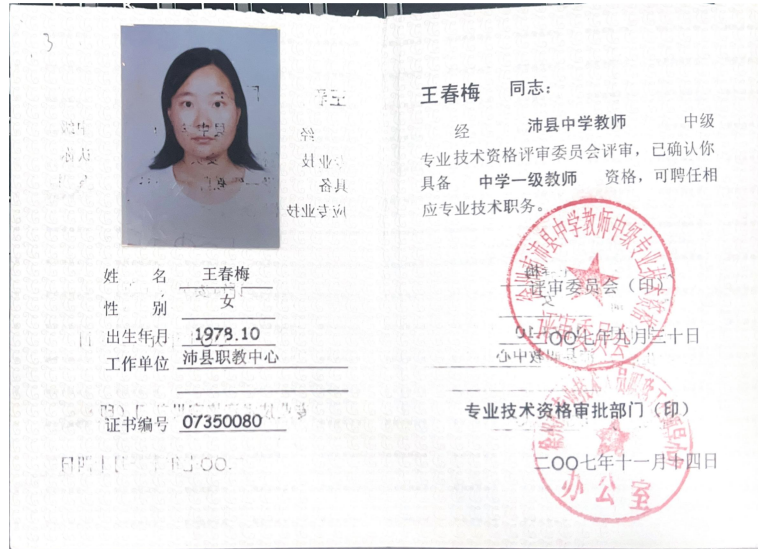 3
姓名 王春梅
性别 女
出生年月 1978.10
工作单位 沛县职教中心
证书编号 07350080
王春梅 同志：
经 沛县中学教师 中级
专业技术资格评审委员会评审，已确认你
具备 中学一级教师 资格，可聘任相
应专业技术职务。
沛县中学教师中级专业技术资格
评审委员会
评审委员会（印）
二〇〇七年九月三十日
专业技术资格审批部门（印）
二〇〇七年十一月十四日
办公室